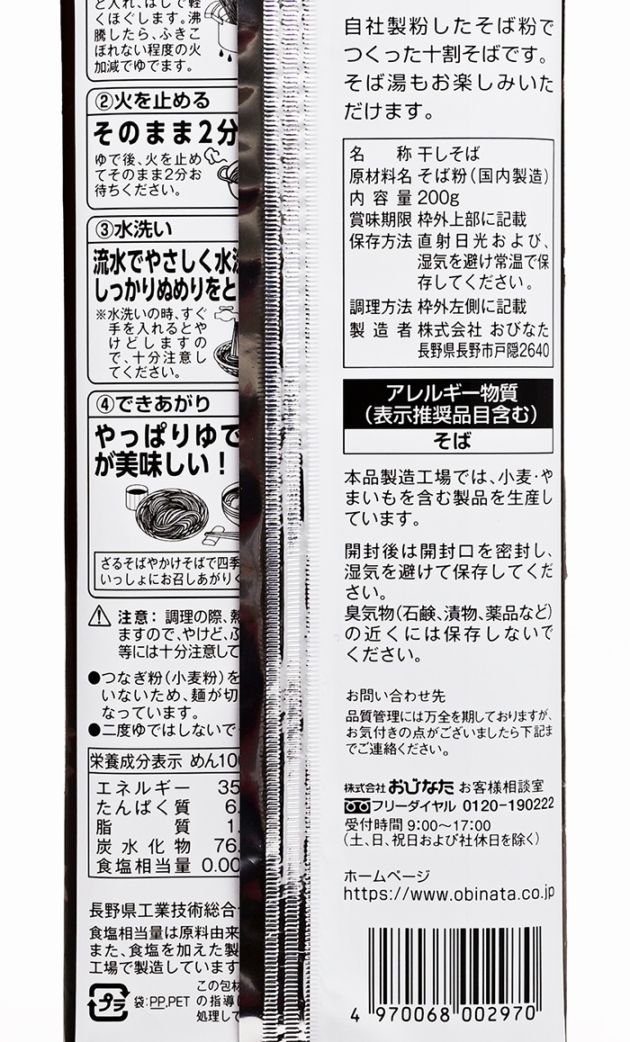 と入れ、はしで軽
くほぐします。沸
騰したら、ふきこ
ぼれない程度の火
加減でゆでます。
②火を止める
そのまま2分
ゆで後、火を止め
てそのまま2分お
待ちください。
③水洗い
流水でやさしく水洗
しっかりぬめりをと
※水洗いの時、すぐ
手を入れるとや
けどしますの
で、十分注意し
てください。
④できあがり
やっぱりゆで
が美味しい！
ざるそばやかけそばで四季
いっしょにお召しあがりく
注意: 調理の際、熱
ますので、やけど、ぶ
等には十分注意して
●つなぎ粉(小麦粉)を
いないため、麺が切
なっています。
●二度ゆではしないで
栄養成分表示 めん100
エネルギー 35
たんぱく質 6.
脂 質 1.
炭水化物 76.
食塩相当量 0.00
長野県工業技術総合
食塩相当量は原料由来
また、食塩を加えた製
工場で製造しています
プラ
袋:PP,PET
この包材
の指導
処理して
自社製粉したそば粉で
つくった十割そばです。
そば湯もお楽しみいた
だけます。
名 称 干しそば
原材料名 そば粉(国内製造)
内容量 200g
賞味期限 枠外上部に記載
保存方法 直射日光および、
湿気を避け常温で保
存してください。
調理方法 枠外左側に記載
製造者 株式会社 おびなた
長野県長野市戸隠2640
アレルギー物質
(表示推奨品目含む)
そば
本品製造工場では、小麦・や
まいもを含む製品を生産し
ています。
開封後は開封口を密封し、
湿気を避けて保存してくだ
さい。
臭気物(石鹸、漬物、薬品など)
の近くには保存しないで
ください。
お問い合わせ先
品質管理には万全を期しておりますが、
お気付きの点がございましたら下記ま
でご連絡ください。
株式会社 おびなた お客様相談室
フリーダイヤル 0120-190222
受付時間 9:00～17:00
(土、日、祝日および社休日を除く)
ホームページ
https://www.obinata.co.jp
4 970068 002970